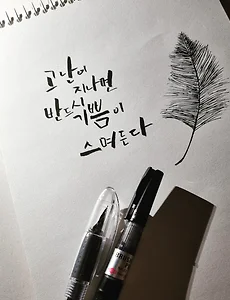 고난이
지나면
반드시 기쁨이
스며든다